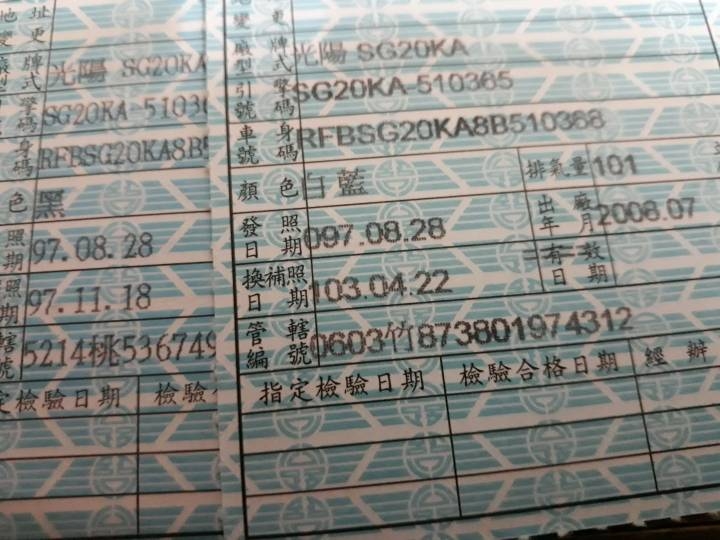 地址
變更
廠牌
型式 光陽 SG20KA
引擎
號碼 SG20KA-5103
車身
號碼 RFBSG20KA8B5
色 黑
照期 97.08.28
照期 97.11.18
轄號 5214桃536749
定檢驗日期 檢驗
變更
廠牌
型式 光陽 SG20KA
引擎
號碼 SG20KA-510365
車身
號碼 RFBSG20KA8B510368
顏色 白藍 排氣量 101
發照
日期 097.08.28 出廠
年月 2008.07
換補照
日期 103.04.22 有效
日期
管轄
編號 0603竹873801974312
指定檢驗日期 檢驗合格日期 經辦